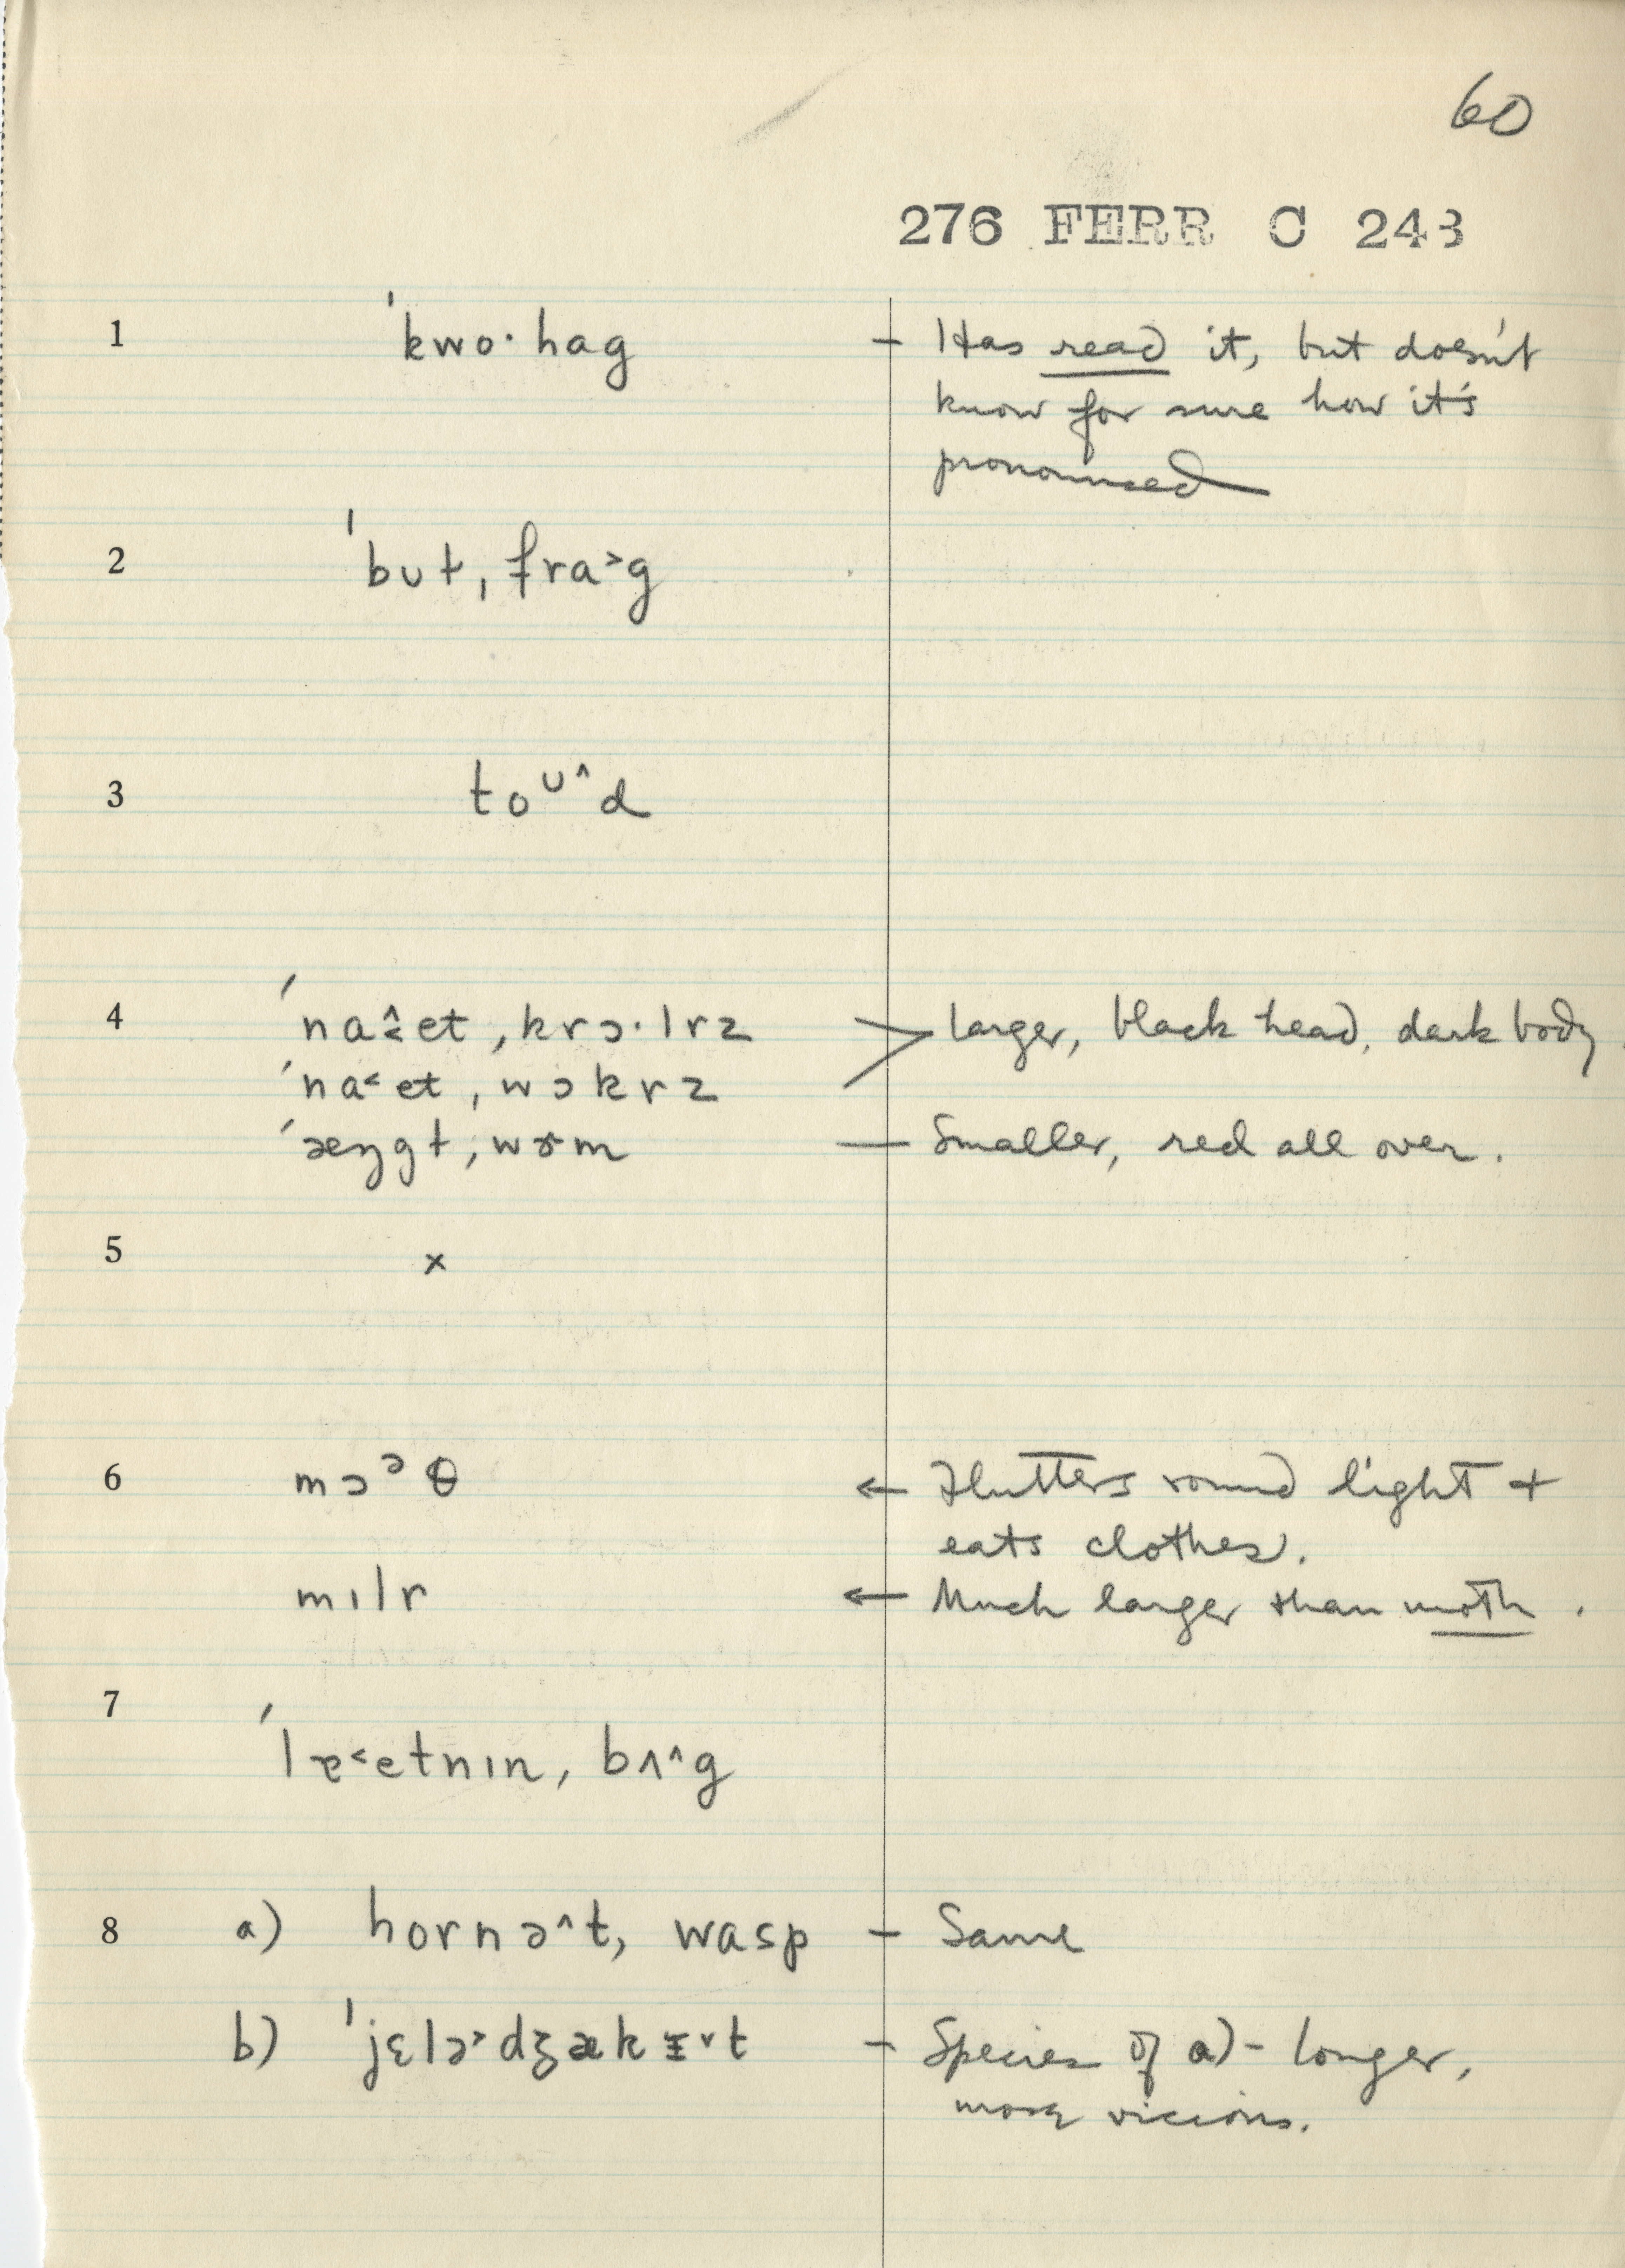 60
276 FERR C 243
1 ˈkwo·hag – Has read it, but doesn't
know for sure how it's
pronounced
2 ˈbʊɫ, fra˃g
3 toᶷ^d
4 ˈna˂^et, krɔ·lrz > larger, black head, dark body.
ˈna˂et, wɔkrz
ˈæŋgɫ, wɝm — Smaller, red all over.
5 x
6 mɔᵊθ ← Flutters round light +
eats clothes.
mɪlr ← Much larger than moth.
7 ˈlɐ˂etnɪn, bʌ^g
8 a) hornə^t, wasp – Same
b) ˈjɛlə˃dʒækɪ˅t – Species of a) – longer,
more vicious.